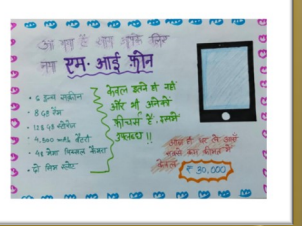 आ गया है आपके लिए
नया एम. आई फ़ोन
• 6 इन्च स्क्रीन
• 8 GB रैम
• 128 GB स्टोरेज
• 4,500 mAh बैटरी
• 48 मेगा पिक्सल कैमरा
• दो सिम स्लॉट
केवल इतने ही नहीं
और भी अनेकों
फ़ीचर्स हैं इसमें
उपलब्ध !!
केवल
₹ 30,000